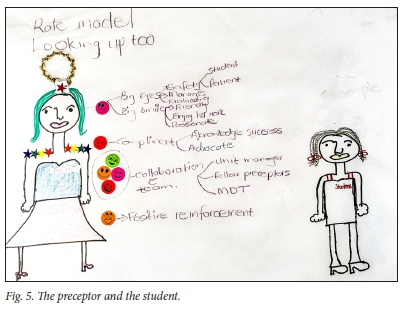 Role model
Looking up too
student
Safety
Patient
Big Eyes
Manage
Evaluating
Big Smile
Friendly
Enjoy her work
Passionate
Compliment
Acknowledge success
Advocate
Collaboration
Unit manager
Fellow preceptors
team.
MDT
Positive reinforcement
Student
Fig. 5. The preceptor and the student.